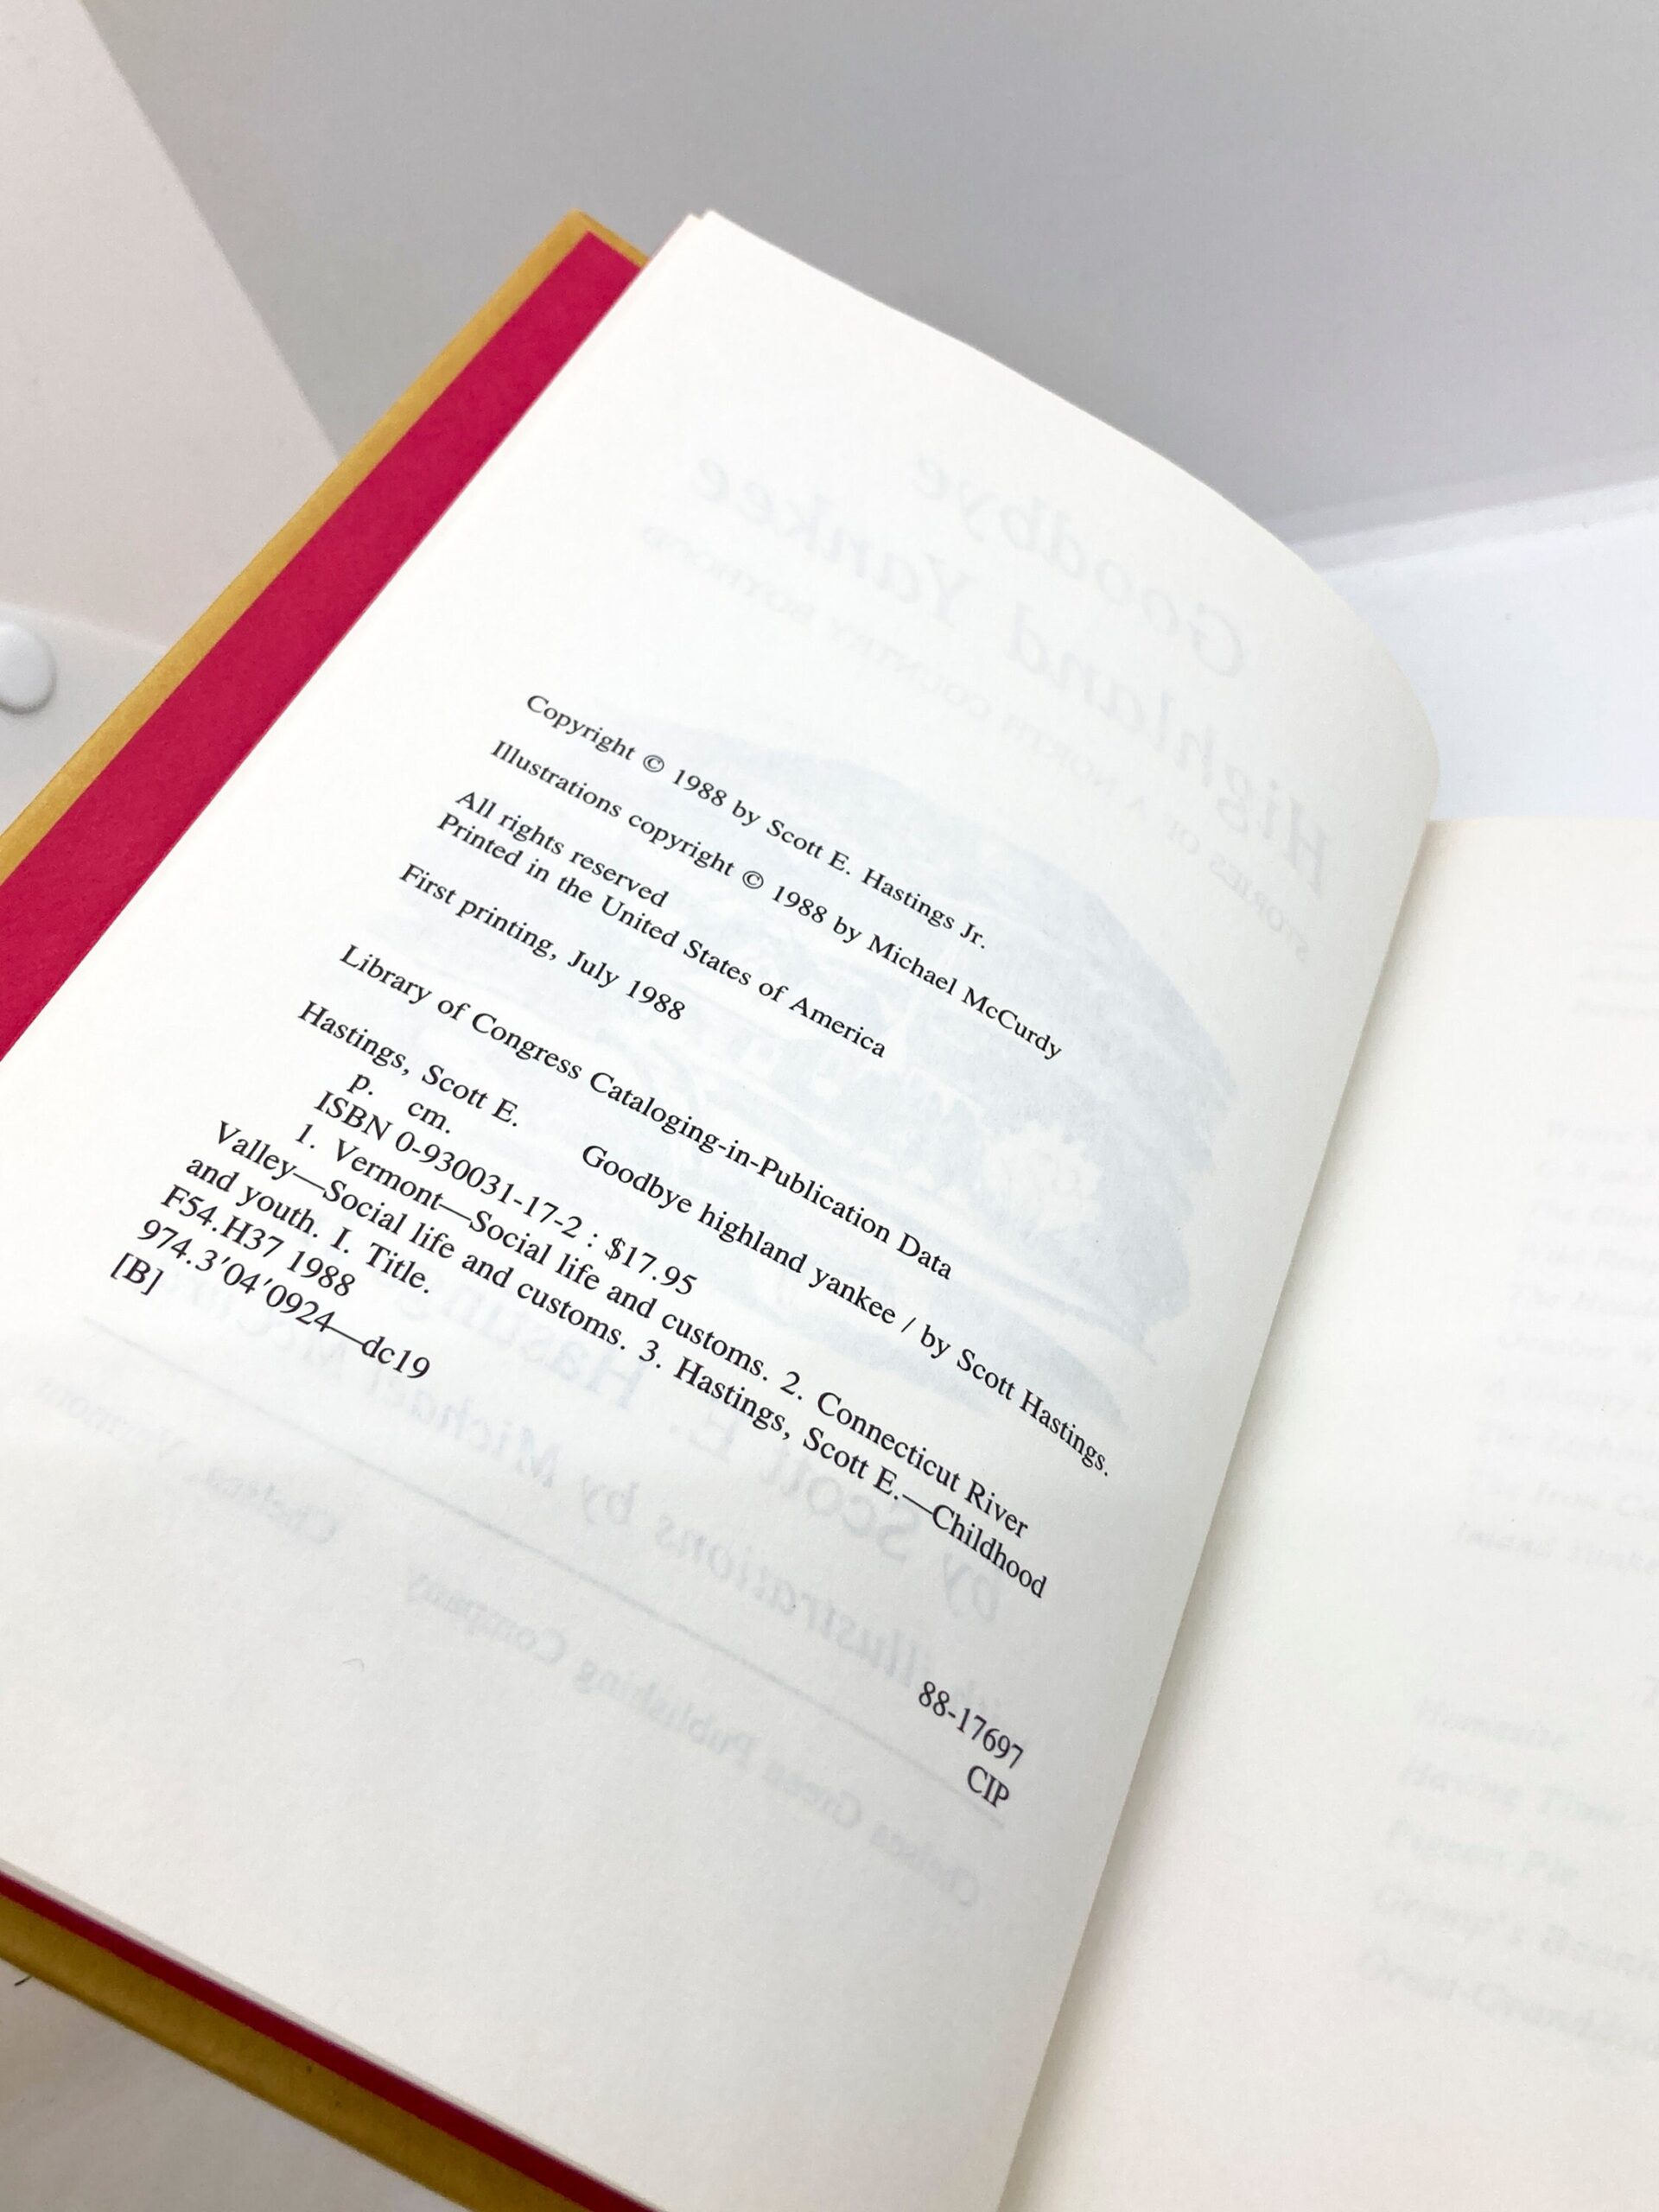 Copyright © 1988 by Scott E. Hastings Jr.
Illustrations copyright © 1988 by Michael McCurdy
All rights reserved
Printed in the United States of America
First printing, July 1988
Library of Congress Cataloging-in-Publication Data
Hastings, Scott E.
Goodbye highland yankee / by Scott Hastings.
p. cm.
ISBN 0-930031-17-2 : $17.95
1. Vermont—Social life and customs. 2. Connecticut River
Valley—Social life and customs. 3. Hastings, Scott E.—Childhood
and youth. I. Title.
F54.H37 1988
974.3'04'0924—dc19
[B]
88-17697
CIP
Goodbye
Highland Yankee
STORIES OF A NORTH COUNTRY BOYHOOD
by Scott E. Hastings
illustrations by Michael
Chelsea Green Publishing Company
Chelsea, Vermont